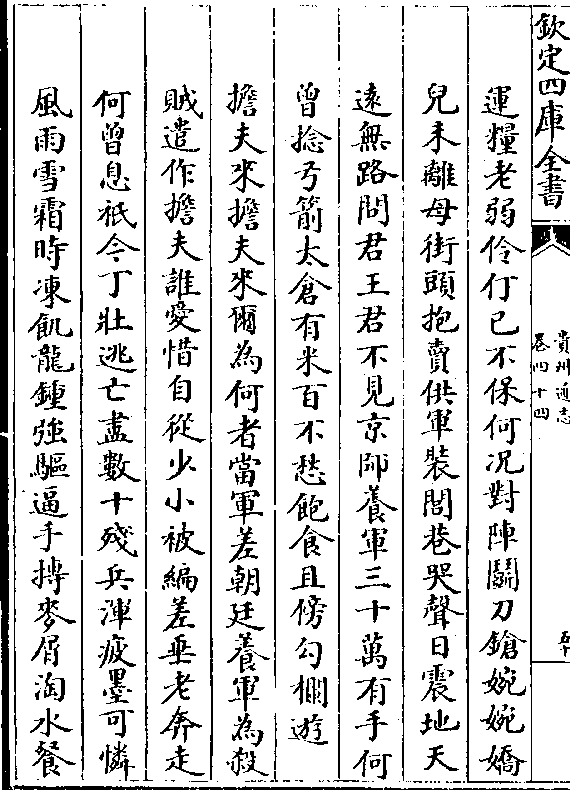 欽定四庫全書
貴州通志
卷四十四
五十
運糧老弱伶仃已不保何况對陣鬭刀鎗婉婉嬌
兒未離母街頭抱賣供軍裝閭巷哭聲日震地天
遠無路問君王君不見京師養軍三十萬有手何
曾捻弓箭太倉有米百不愁飽食且傍勾欄遊
擔夫來擔夫來爾為何者當軍差朝廷養軍為殺
賊遣作擔夫誰愛惜自從少小被編差垂老奔走
何曾息祇今丁壯逃亡盡數十殘兵渾疲墨可憐
風雨雪霜時凍飢龍鍾強驅逼手摶麥屑淘水餐